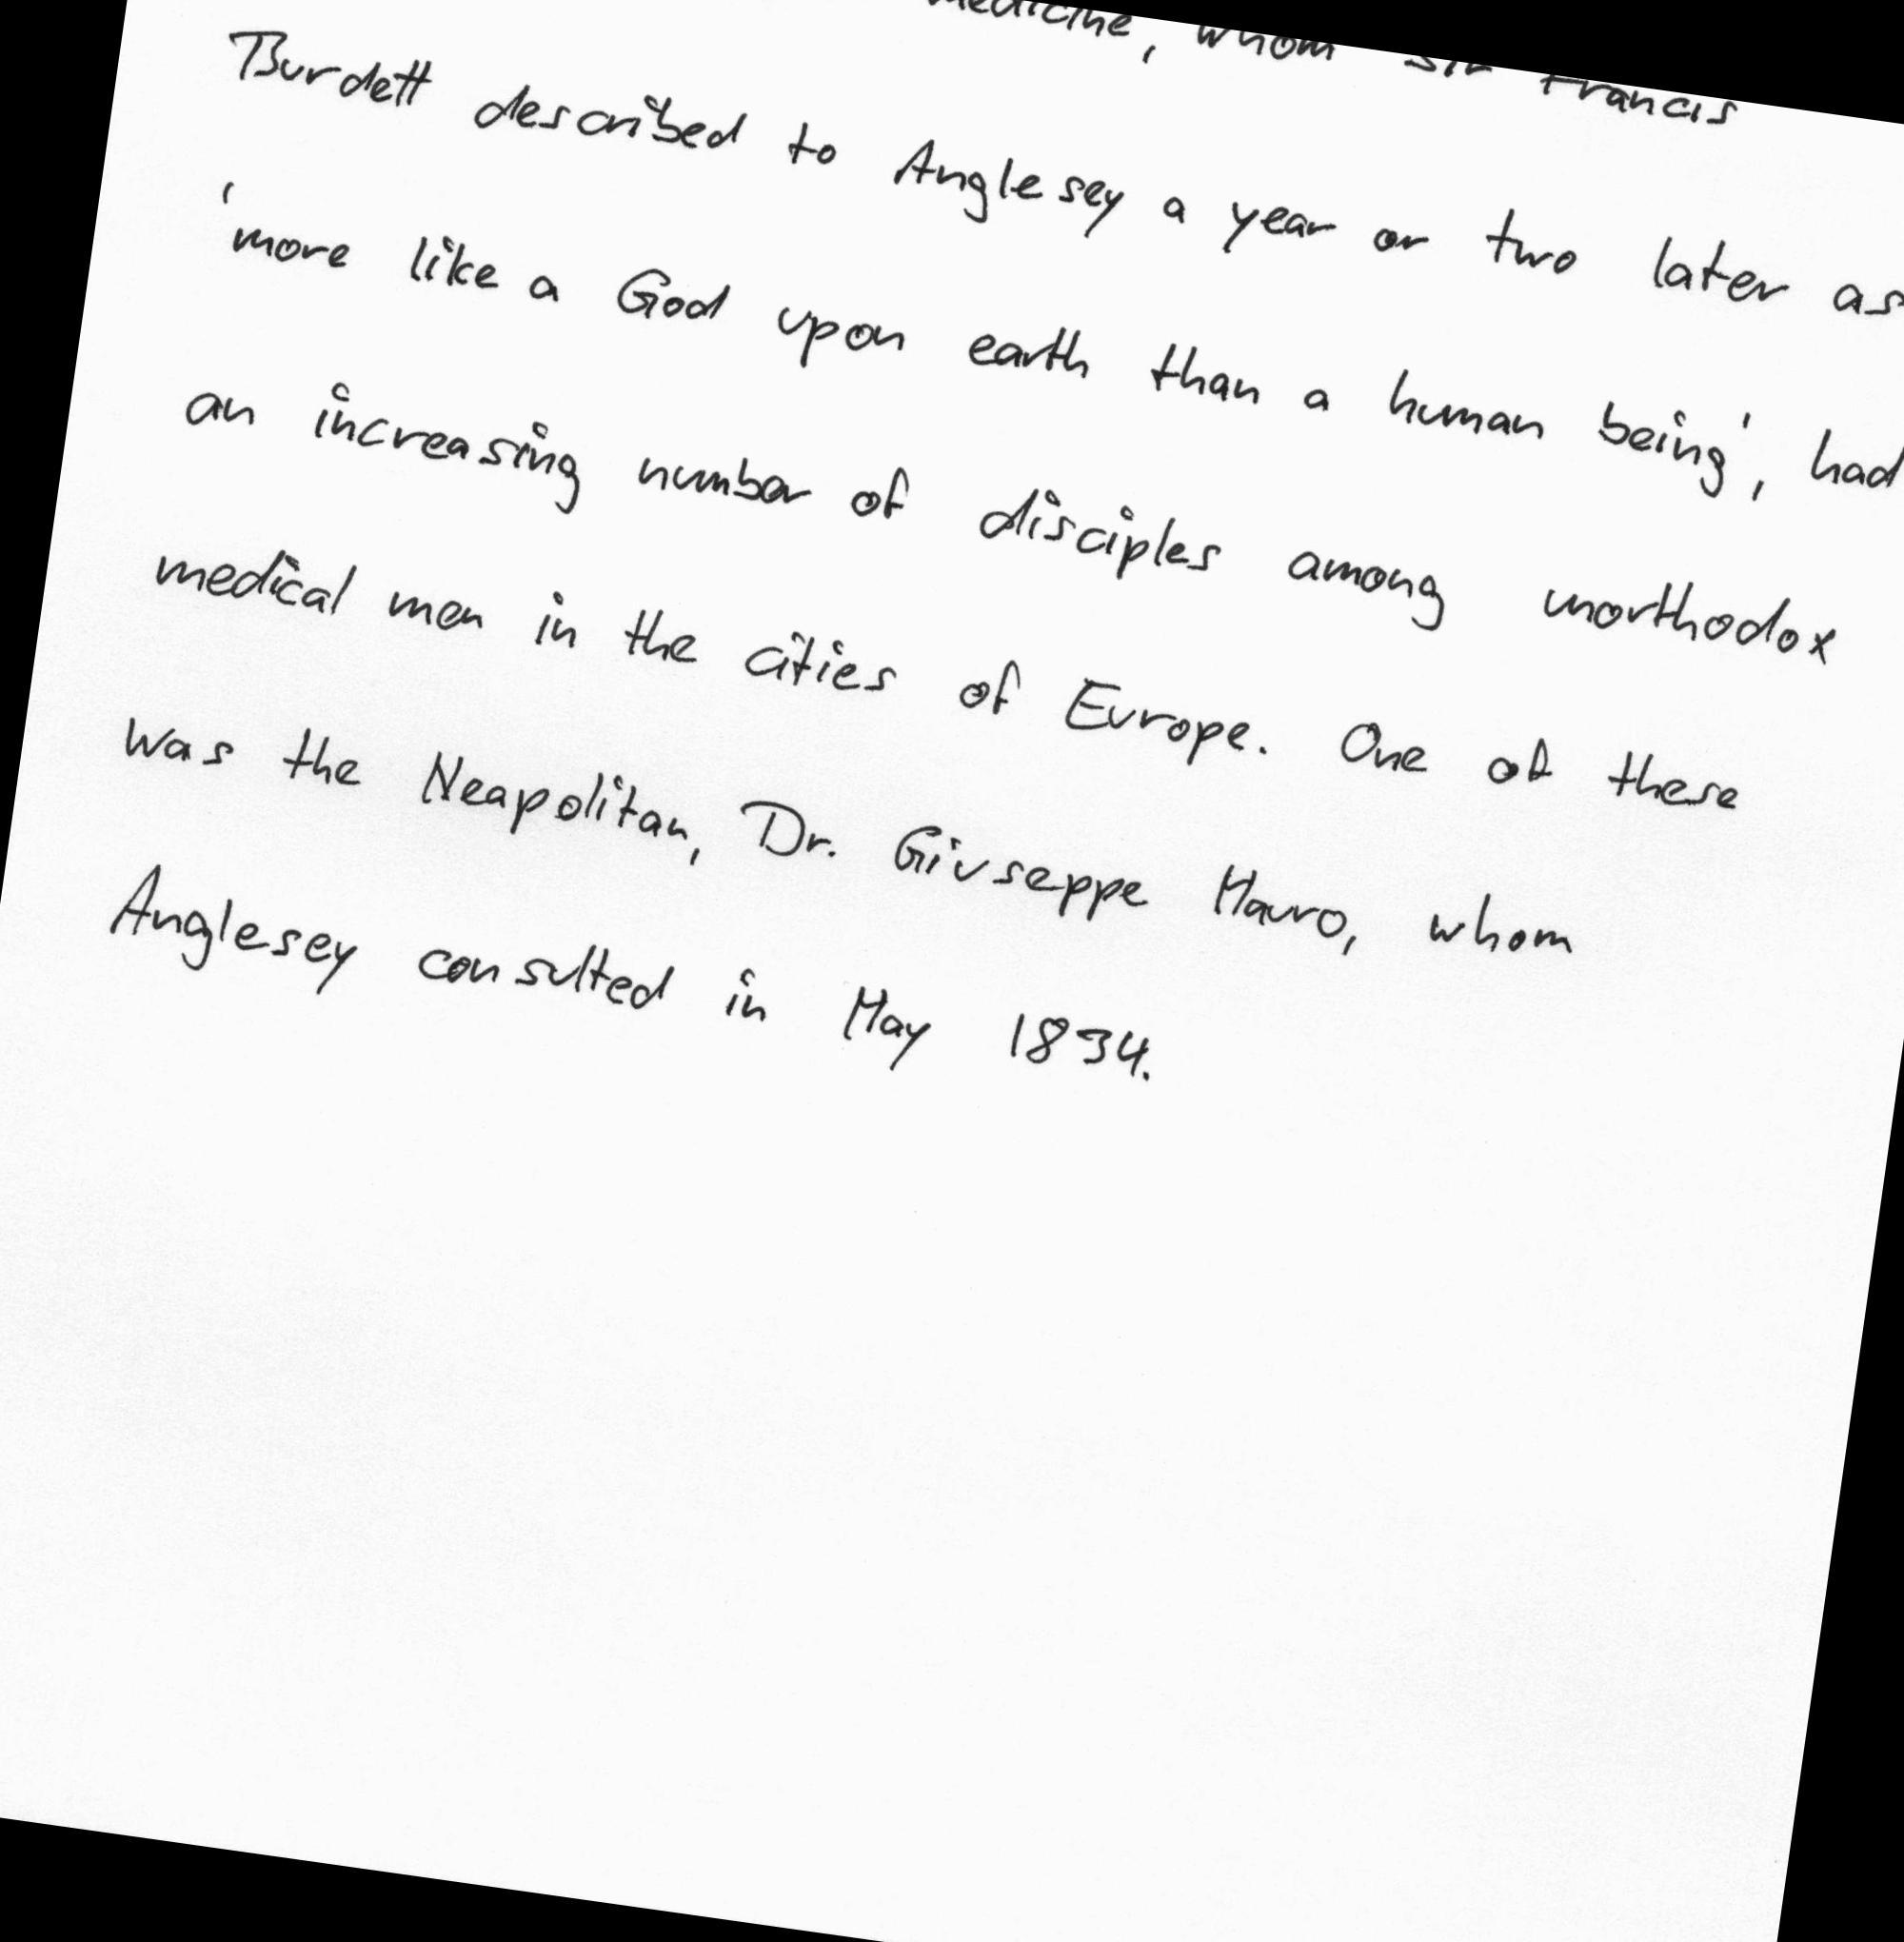 medicine, whom Sir Francis
Burdett described to Anglesey a year or two later as
'more like a God upon earth than a human being', had
an increasing number of disciples among unorthodox
medical men in the cities of Europe. One of these
was the Neapolitan, Dr. Giuseppe Mauro, whom
Anglesey consulted in May 1834.